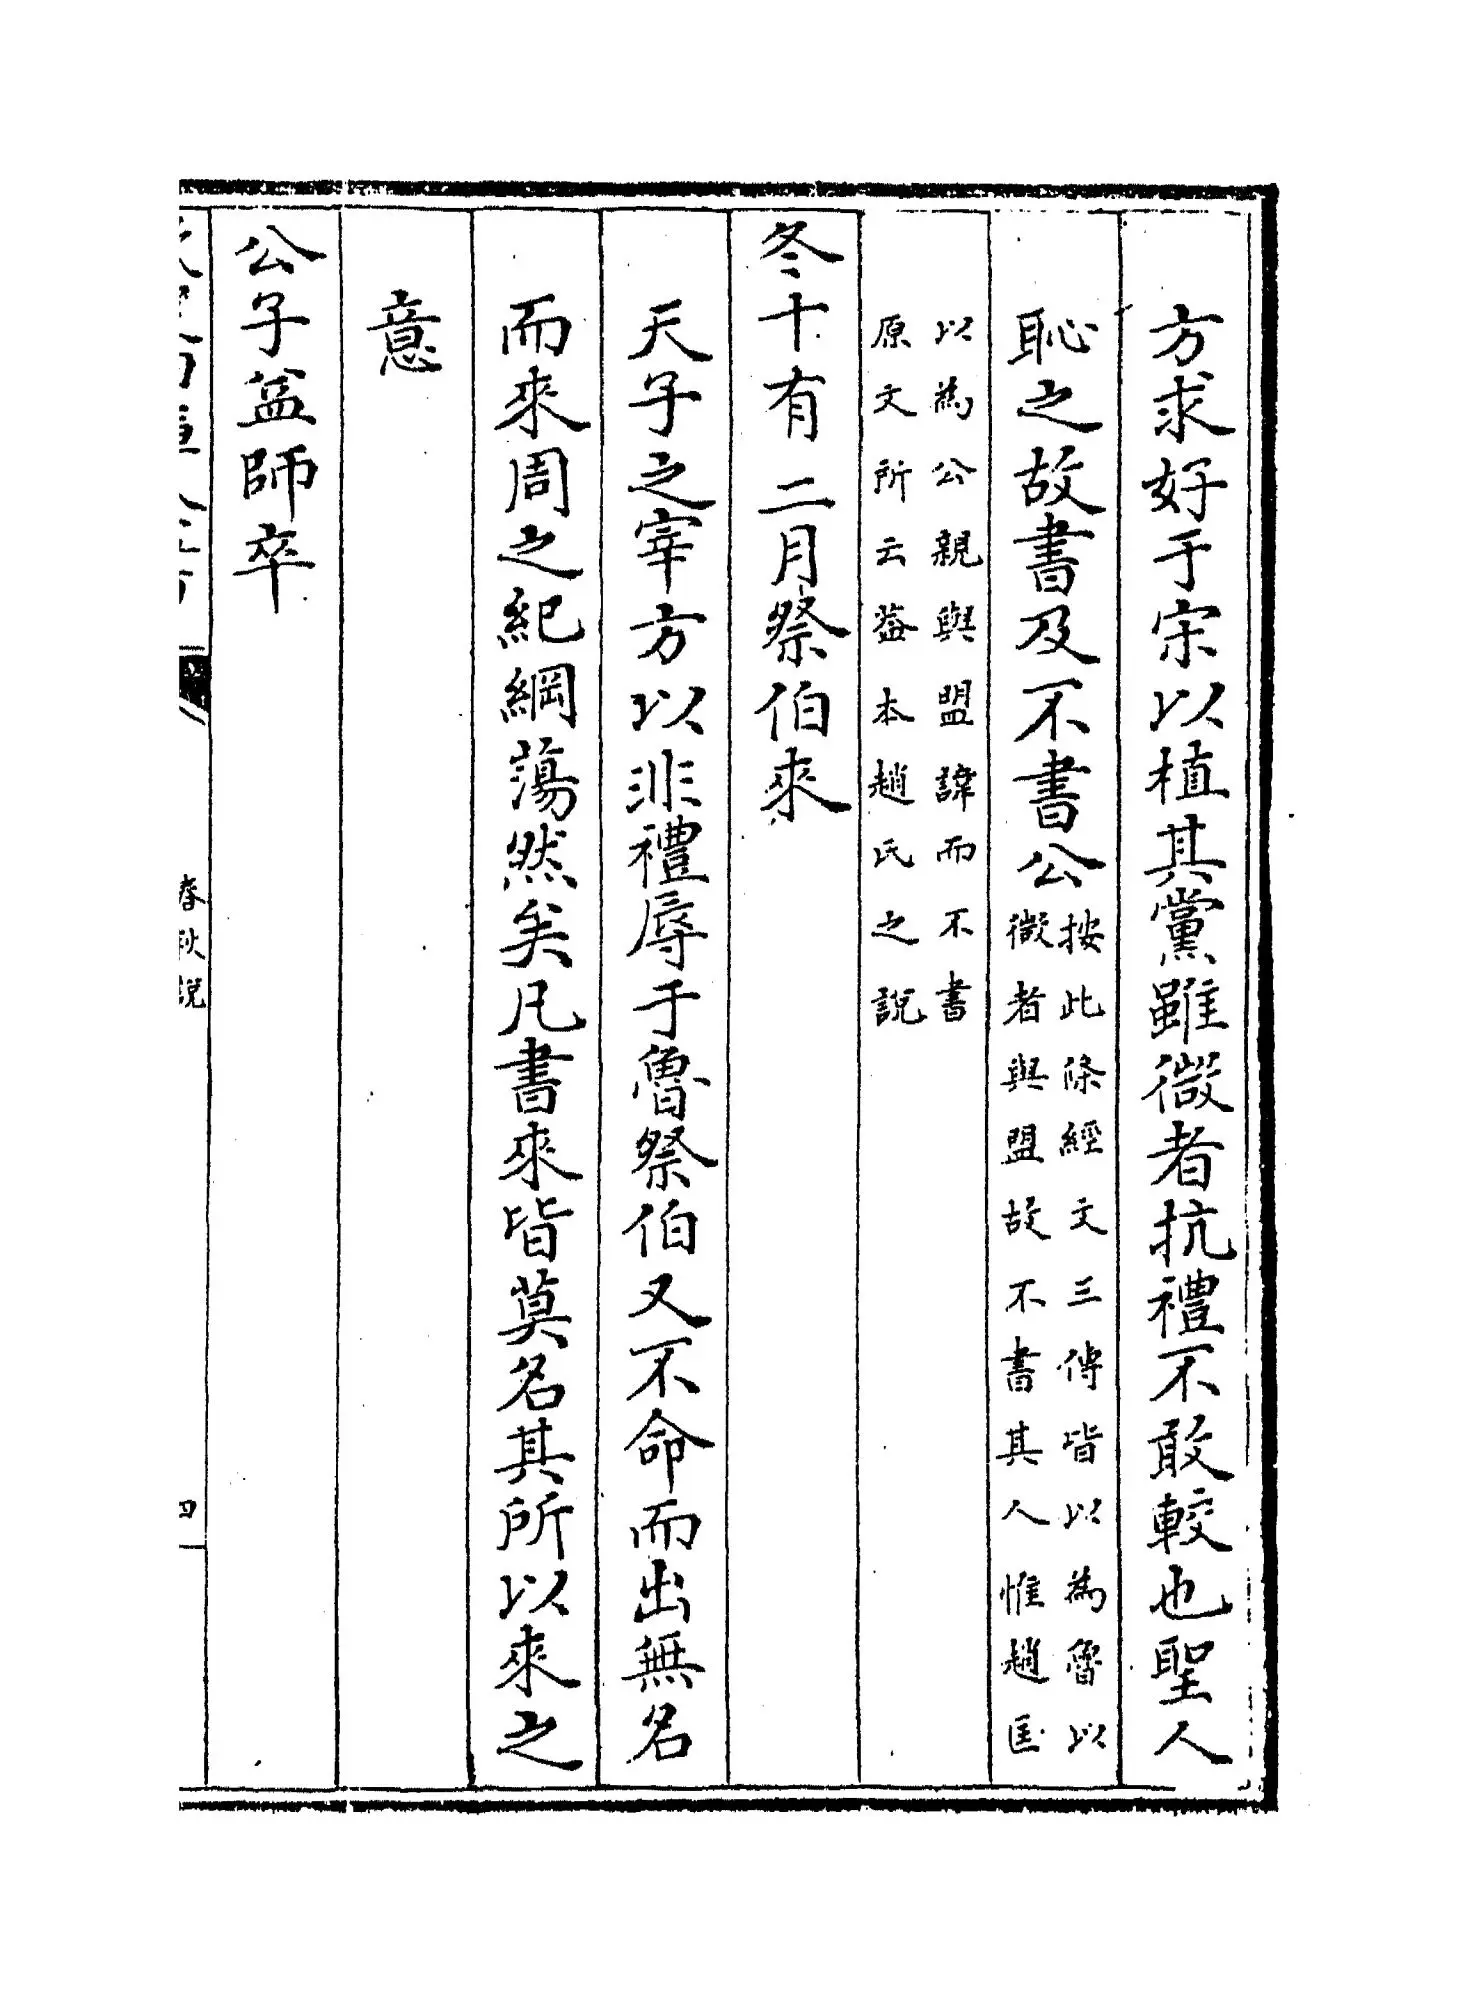 方求好于宋以植其黨雖微者抗禮不敢較也聖人
恥之故書及不書公
按此條經文三傳皆以為魯以
微者與盟故不書其人惟趙匡
以為公親與盟諱而不書
原文所云葢本趙氏之說
冬十有二月祭伯來
天子之宰方以非禮辱于魯祭伯又不命而出無名
而來周之紀綱蕩然矣凡書來皆莫名其所以來之
意
公子益師卒
春秋說
四